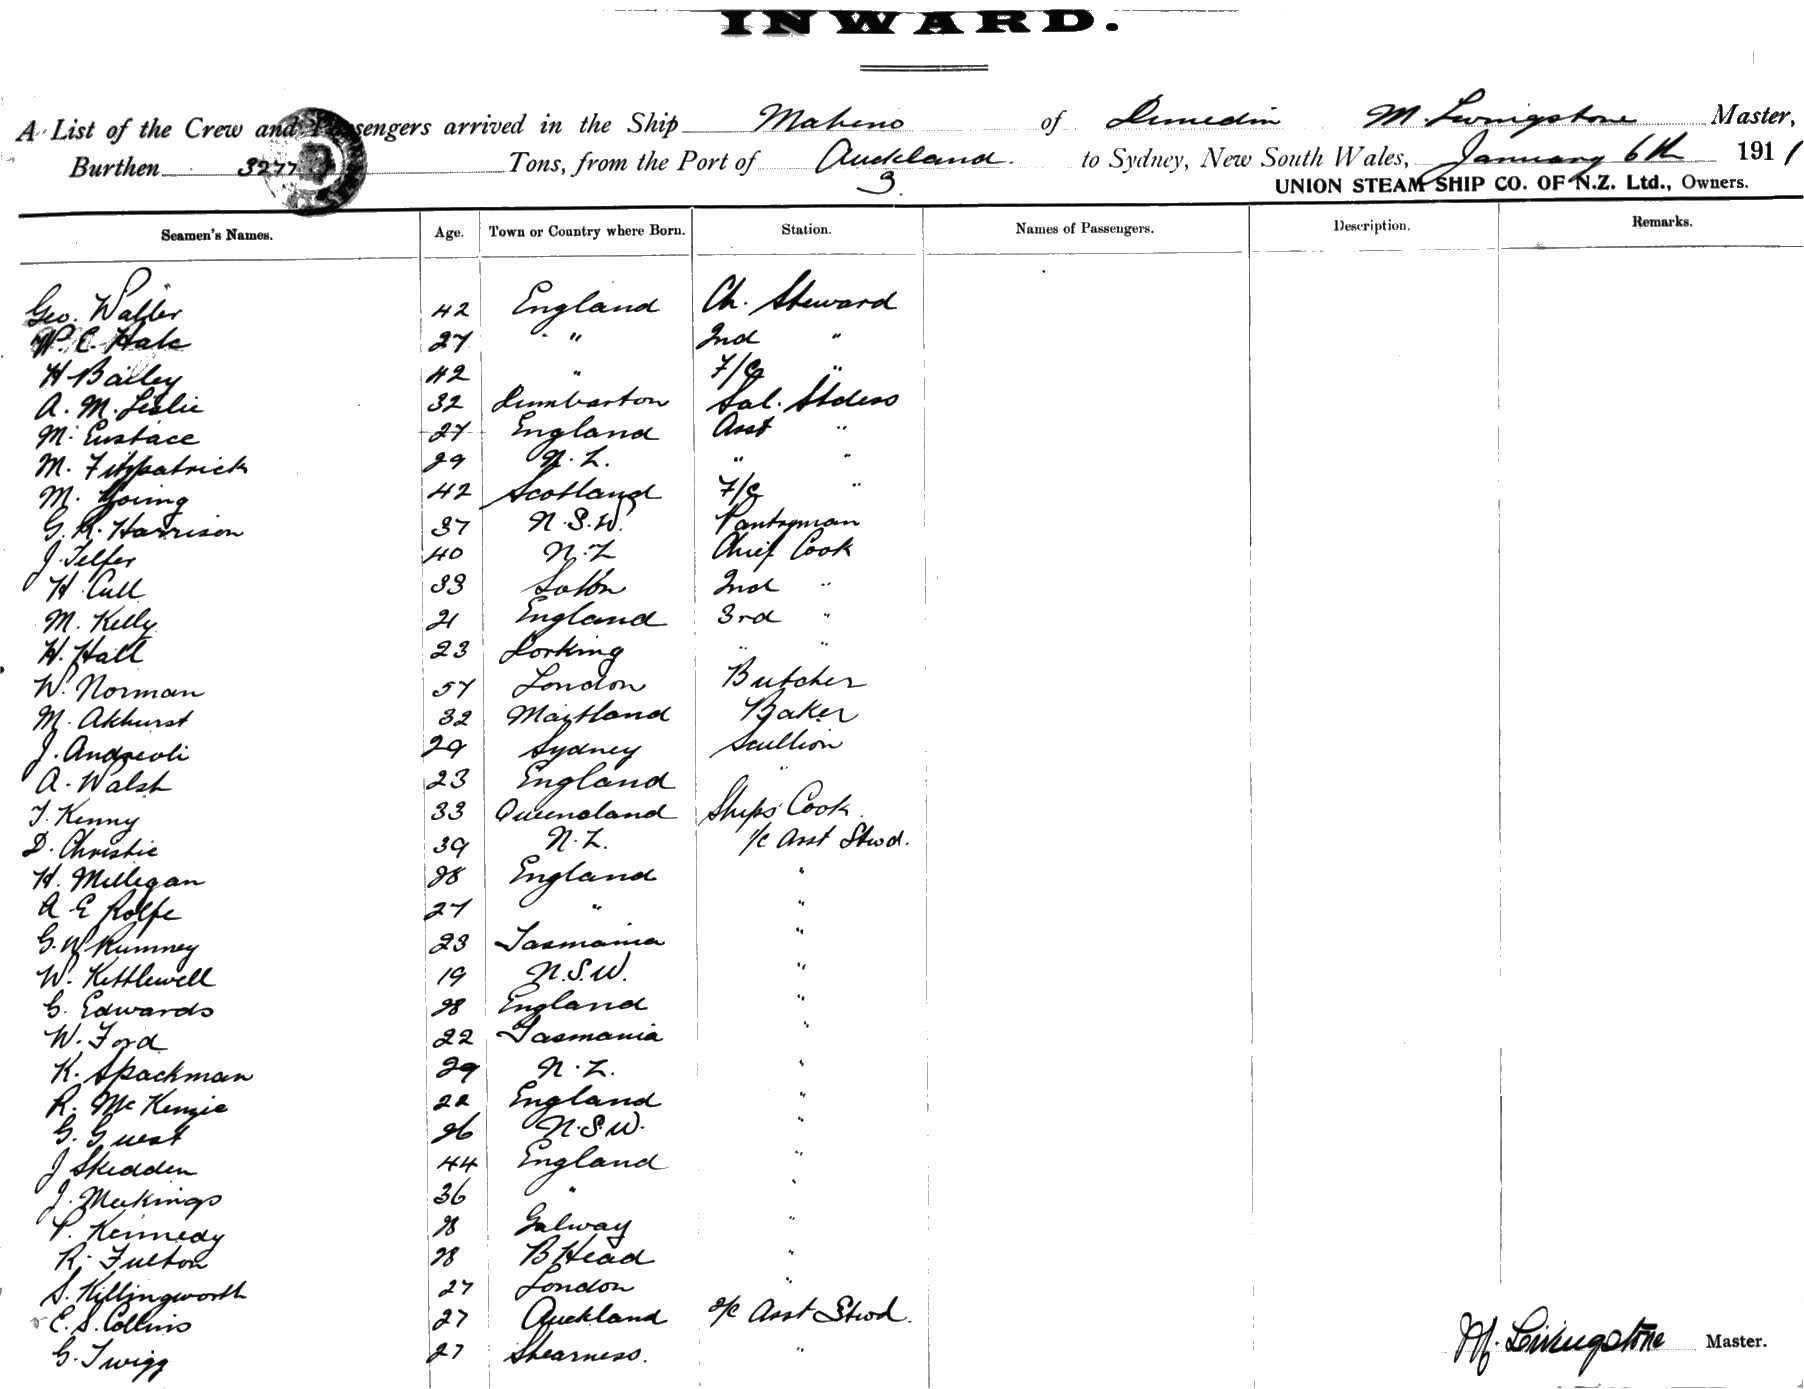 INWARD.
A List of the Crew and Passengers arrived in the Ship Maheno of Dunedin M. Livingstone Master,
Burthen 3277 Tons, from the Port of Auckland. to Sydney, New South Wales, January 6th 1911
3. UNION STEAM SHIP CO. OF N.Z. Ltd., Owners.
Seamen's Names. Age. Town or Country where Born. Station. Names of Passengers. Description. Remarks.
Geo. Waller 42 England Ch. Steward
W. C. Hale 27 " 2nd "
H Bailey 42 " F/C "
A. M. Leslie 32 Dumbarton Sal. Stdess
M. Eustace 27 England Asst "
M. Fitzpatrick 29 N.Z. " "
M. Young 42 Scotland F/C "
G. R. Harrison 37 N.S.W. Pantryman
J. Telfer 40 N.Z Chief Cook
H. Cull 33 2nd "
M. Kelly 21 England 3rd "
H. Hall 23 Dorking " "
W. Norman 57 London Butcher
M. Akhurst 32 Maitland Baker
J. Andreoli 29 Sydney Scullion
A. Walsh 23 England "
T. Kenny 33 Queensland Ships Cook.
D. Christie 39 N.Z. 1/C Asst Stwd.
H. Milligan 28 England "
A E Rolfe 27 " "
G. W Rumney 23 Tasmania "
W. Kettlewell 19 N.S.W. "
G. Edwards 28 England "
W. Ford 22 Tasmania "
K. Spackman 29 N.Z. "
R. McKenzie 22 England "
G. Guest 26 N.S.W. "
J Skedden 44 England "
J. Meekings 36 " "
P. Kennedy 28 Galway "
R. Fulton 28 B Head "
S. Killingworth 27 London "
E. S. Collins 27 Auckland 2/C Asst Stwd.
G. Twigg 27 Shearness. "
M. Livingstone Master.